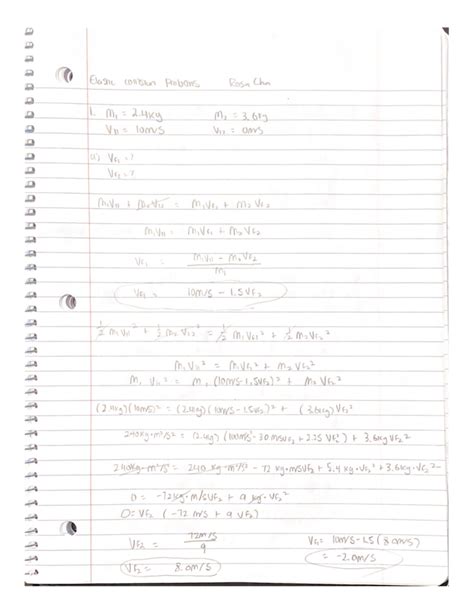 Elastic Collision Problems Rosa Chu
1. m₁ = 2.4kg m₂ = 3.6kg
V₁₁ = 10m/s V₁₂ = 0m/s
a) Vf₁ = ?
Vf₂ = ?
m₁V₁₁ + m₂V₁₂ = m₁Vf₁ + m₂Vf₂
m₁V₁₁ = m₁Vf₁ + m₂Vf₂
Vf₁ = m₁V₁₁ - m₂Vf₂ / m₁
Vf₁ = 10m/s - 1.5Vf₂
½ m₁V₁₁² + ½ m₂V₁₂² = ½ m₁Vf₁² + ½ m₂Vf₂²
m₁V₁₁² = m₁Vf₁² + m₂Vf₂²
m₁V₁₁² = m₁(10m/s - 1.5Vf₂)² + m₂Vf₂²
(2.4kg)(10m/s)² = (2.4kg)(10m/s - 1.5Vf₂)² + (3.6kg)Vf₂²
240kg·m²/s² = (2.4kg)(100m²/s² - 30m/sVf₂ + 2.25Vf₂²) + 3.6kgVf₂²
240kg·m²/s² = 240kg·m²/s² - 72kg·m/sVf₂ + 5.4kg·Vf₂² + 3.6kg·Vf₂²
0 = -72kg·m/sVf₂ + 9kg·Vf₂²
0 = Vf₂(-72m/s + 9Vf₂)
Vf₂ = 72m/s / 9 Vf₁ = 10m/s - 1.5(8.0m/s)
Vf₂ = 8.0m/s = -2.0m/s